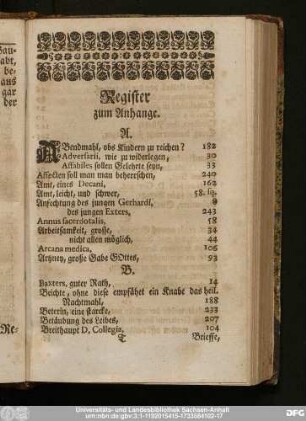 Register
zum Anhange.
A.
ABendmahl, obs Kindern zu reichen? 182
Adversarii, wie zu widerlegen, 30
Affabiles sollen Gelehrte seyn, 33
Affecten soll man man beherrschen, 240
Amt, eines Decani, 162
Amt, leicht, und schwer, 58. sq.
Anfechtung des jungen Gerhardi,
des jungen Exters, 243
Annus sacerdotalis, 58
Arbeitsamkeit, große, 34
nicht allen möglich, 44
Arcana medica, 106
Artzney, große Gabe GOttes, 92
B.
Baxters, guter Rath, 14
Beichte, ohne diese empfähet ein Knabe das heil.
Nachtmahl, 188
Beterin, eine starcke, 233
Betäubung des Leibes, 207
Breithaupt D, Collegia, 104
T Brieffe,
abt,
be-
aus
gar
der
Re-
Universitäts- und Landesbibliothek Sachsen-Anhalt
urn:nbn:de:gbv:3:1-1192015415-1733584102-17
DFG